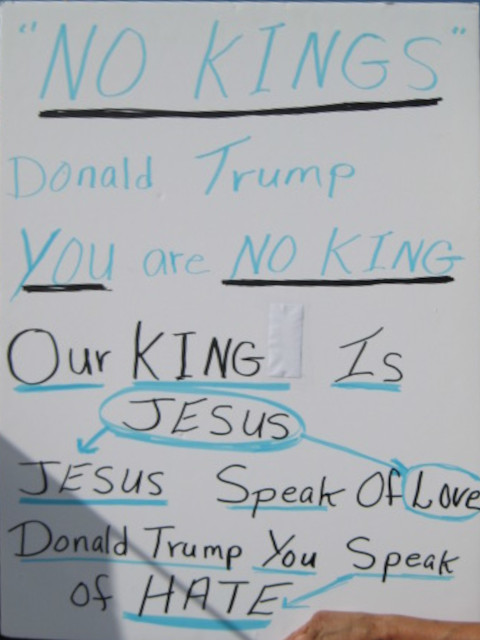 "NO KINGS"
Donald Trump
YOU are NO KING
Our KING Is
JESUS
JESUS Speak Of Love
Donald Trump You Speak
of HATE